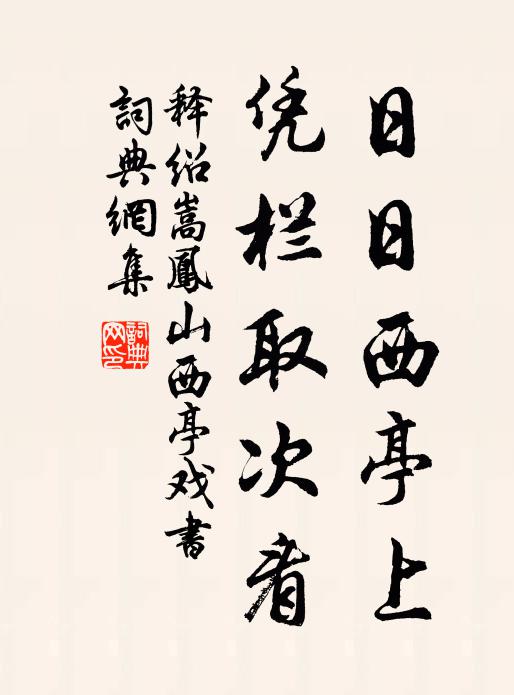 日日西亭上
凭栏取次看
释绍嵩鳳山西亭戏書
詞典網集
詞典网印